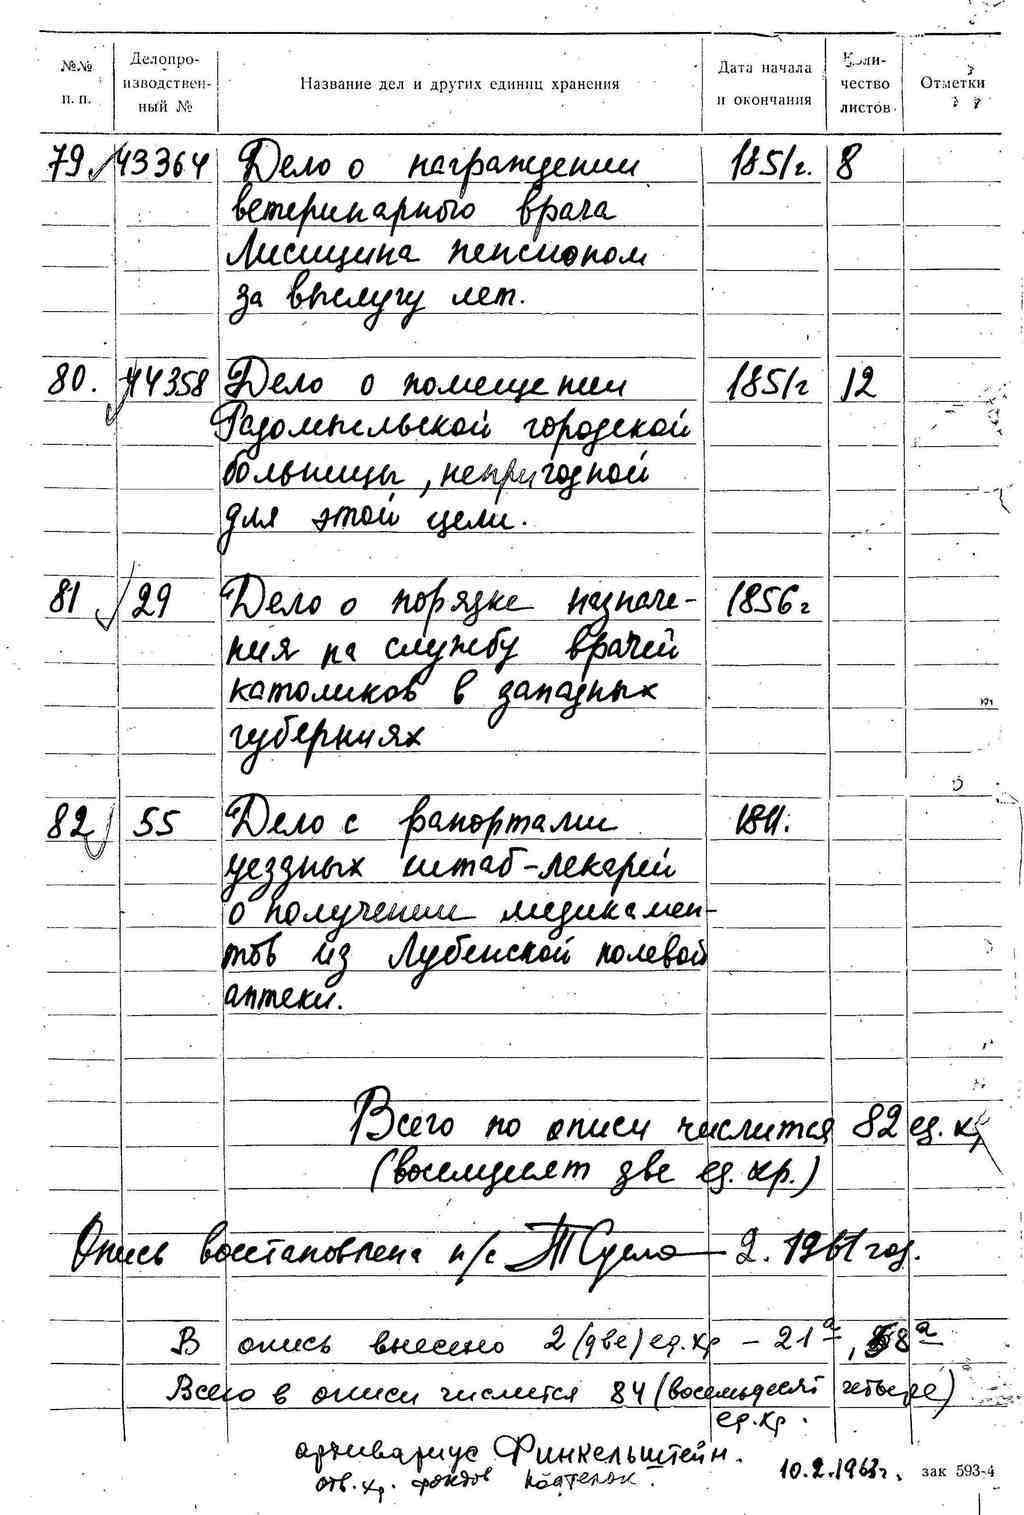 №№ п. п. | Делопроизводствен- ный № | Название дел и других единиц хранения | Дата начала и окончания | Количество листов | Отметки
79. 43364 Дело о награждении 1851г. 8
ветеринарного врача
Лисицина пенсионом
за выслугу лет.
80. 44358 Дело о помещении 1851г 12
Радомысльской городской
больницы, непригодной
для этой цели.
81 29 Дело о порядке назначе- 1856г
ния на службу врачей
католиков в западных
губерниях
82 55 Дело с рапортами 1811.
уездных штаб-лекарей
о получении медикамен-
тов из Лубенской полевой
аптеки.
Всего по описи числится 82 ед. х
(восемдесят две ед. хр.)
Опись восстановлена н/с 2. 1961 год.
В опись внесено 2 (две) ед. хр – 21а, 8а
Всего в описи числится 84 (восемьдесят четыре)
ед. хр.
архивариус Финкельштейн.
отв. хр. фондов 10.2.1963г. зак 593-4